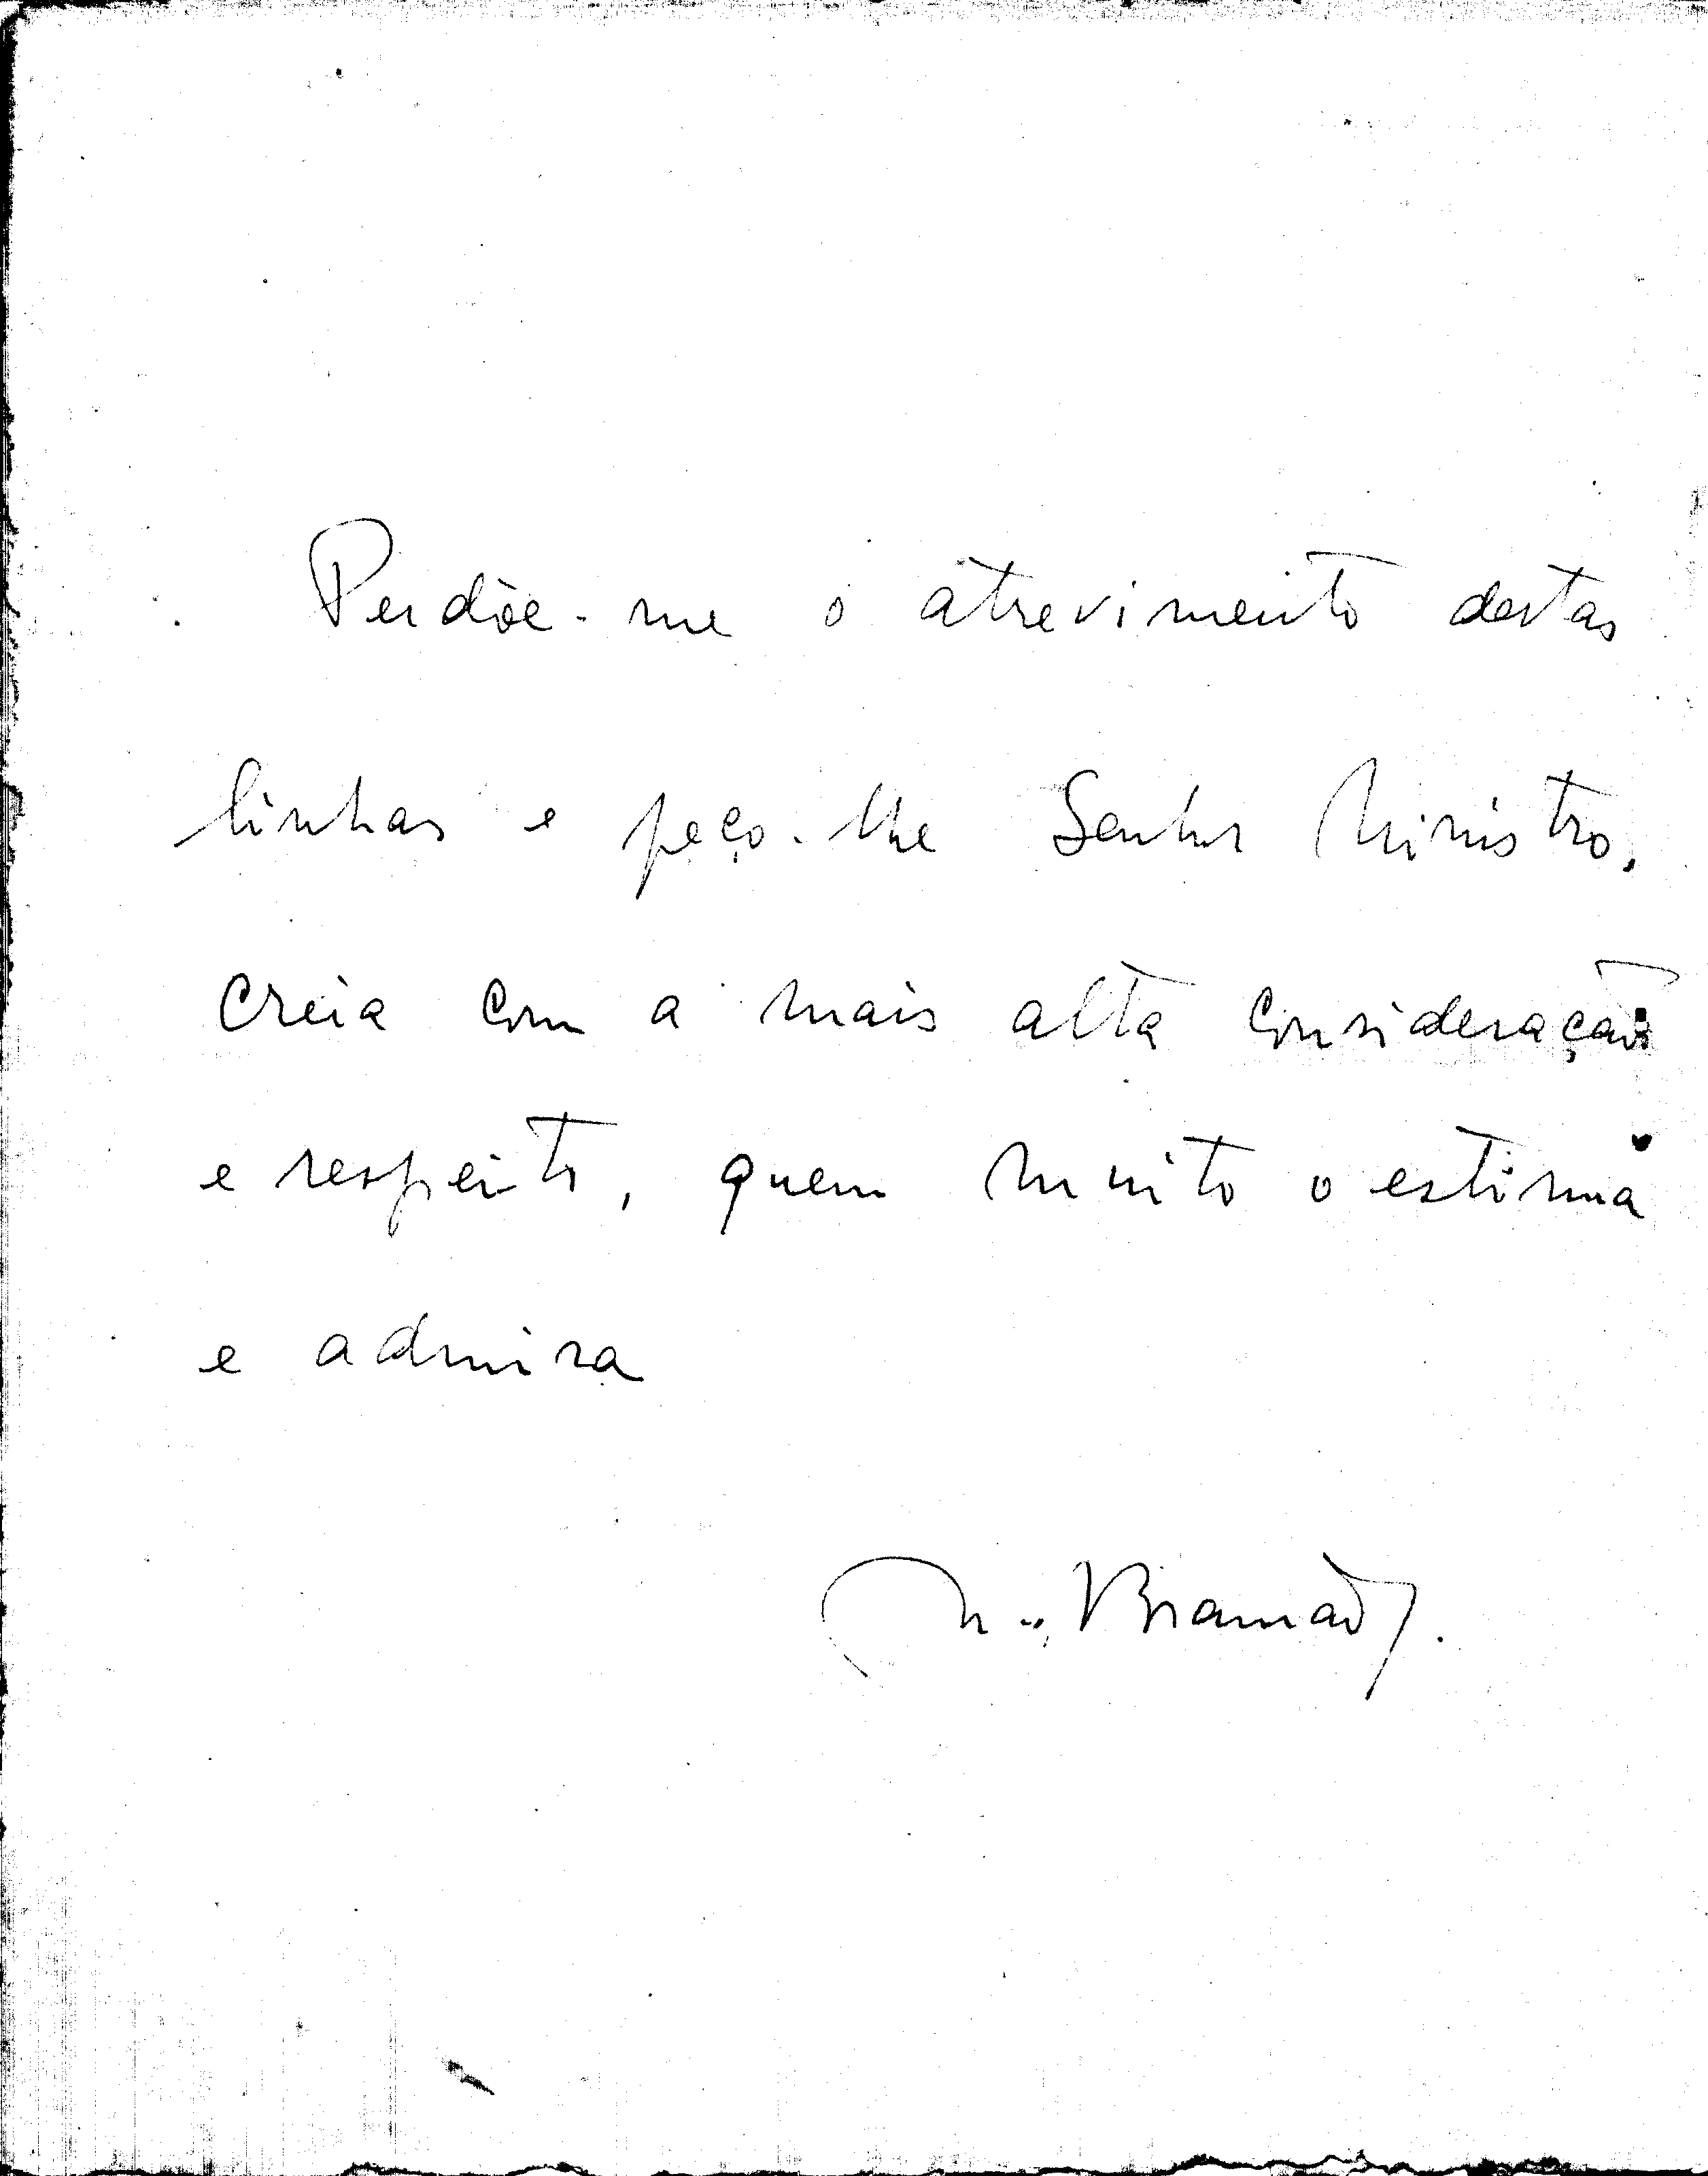 Perdõe-me o atrevimento destas
linhas e peço-lhe Senhor Ministro,
creia com a mais alta consideração
e respeito, quem muito o estima
e admira